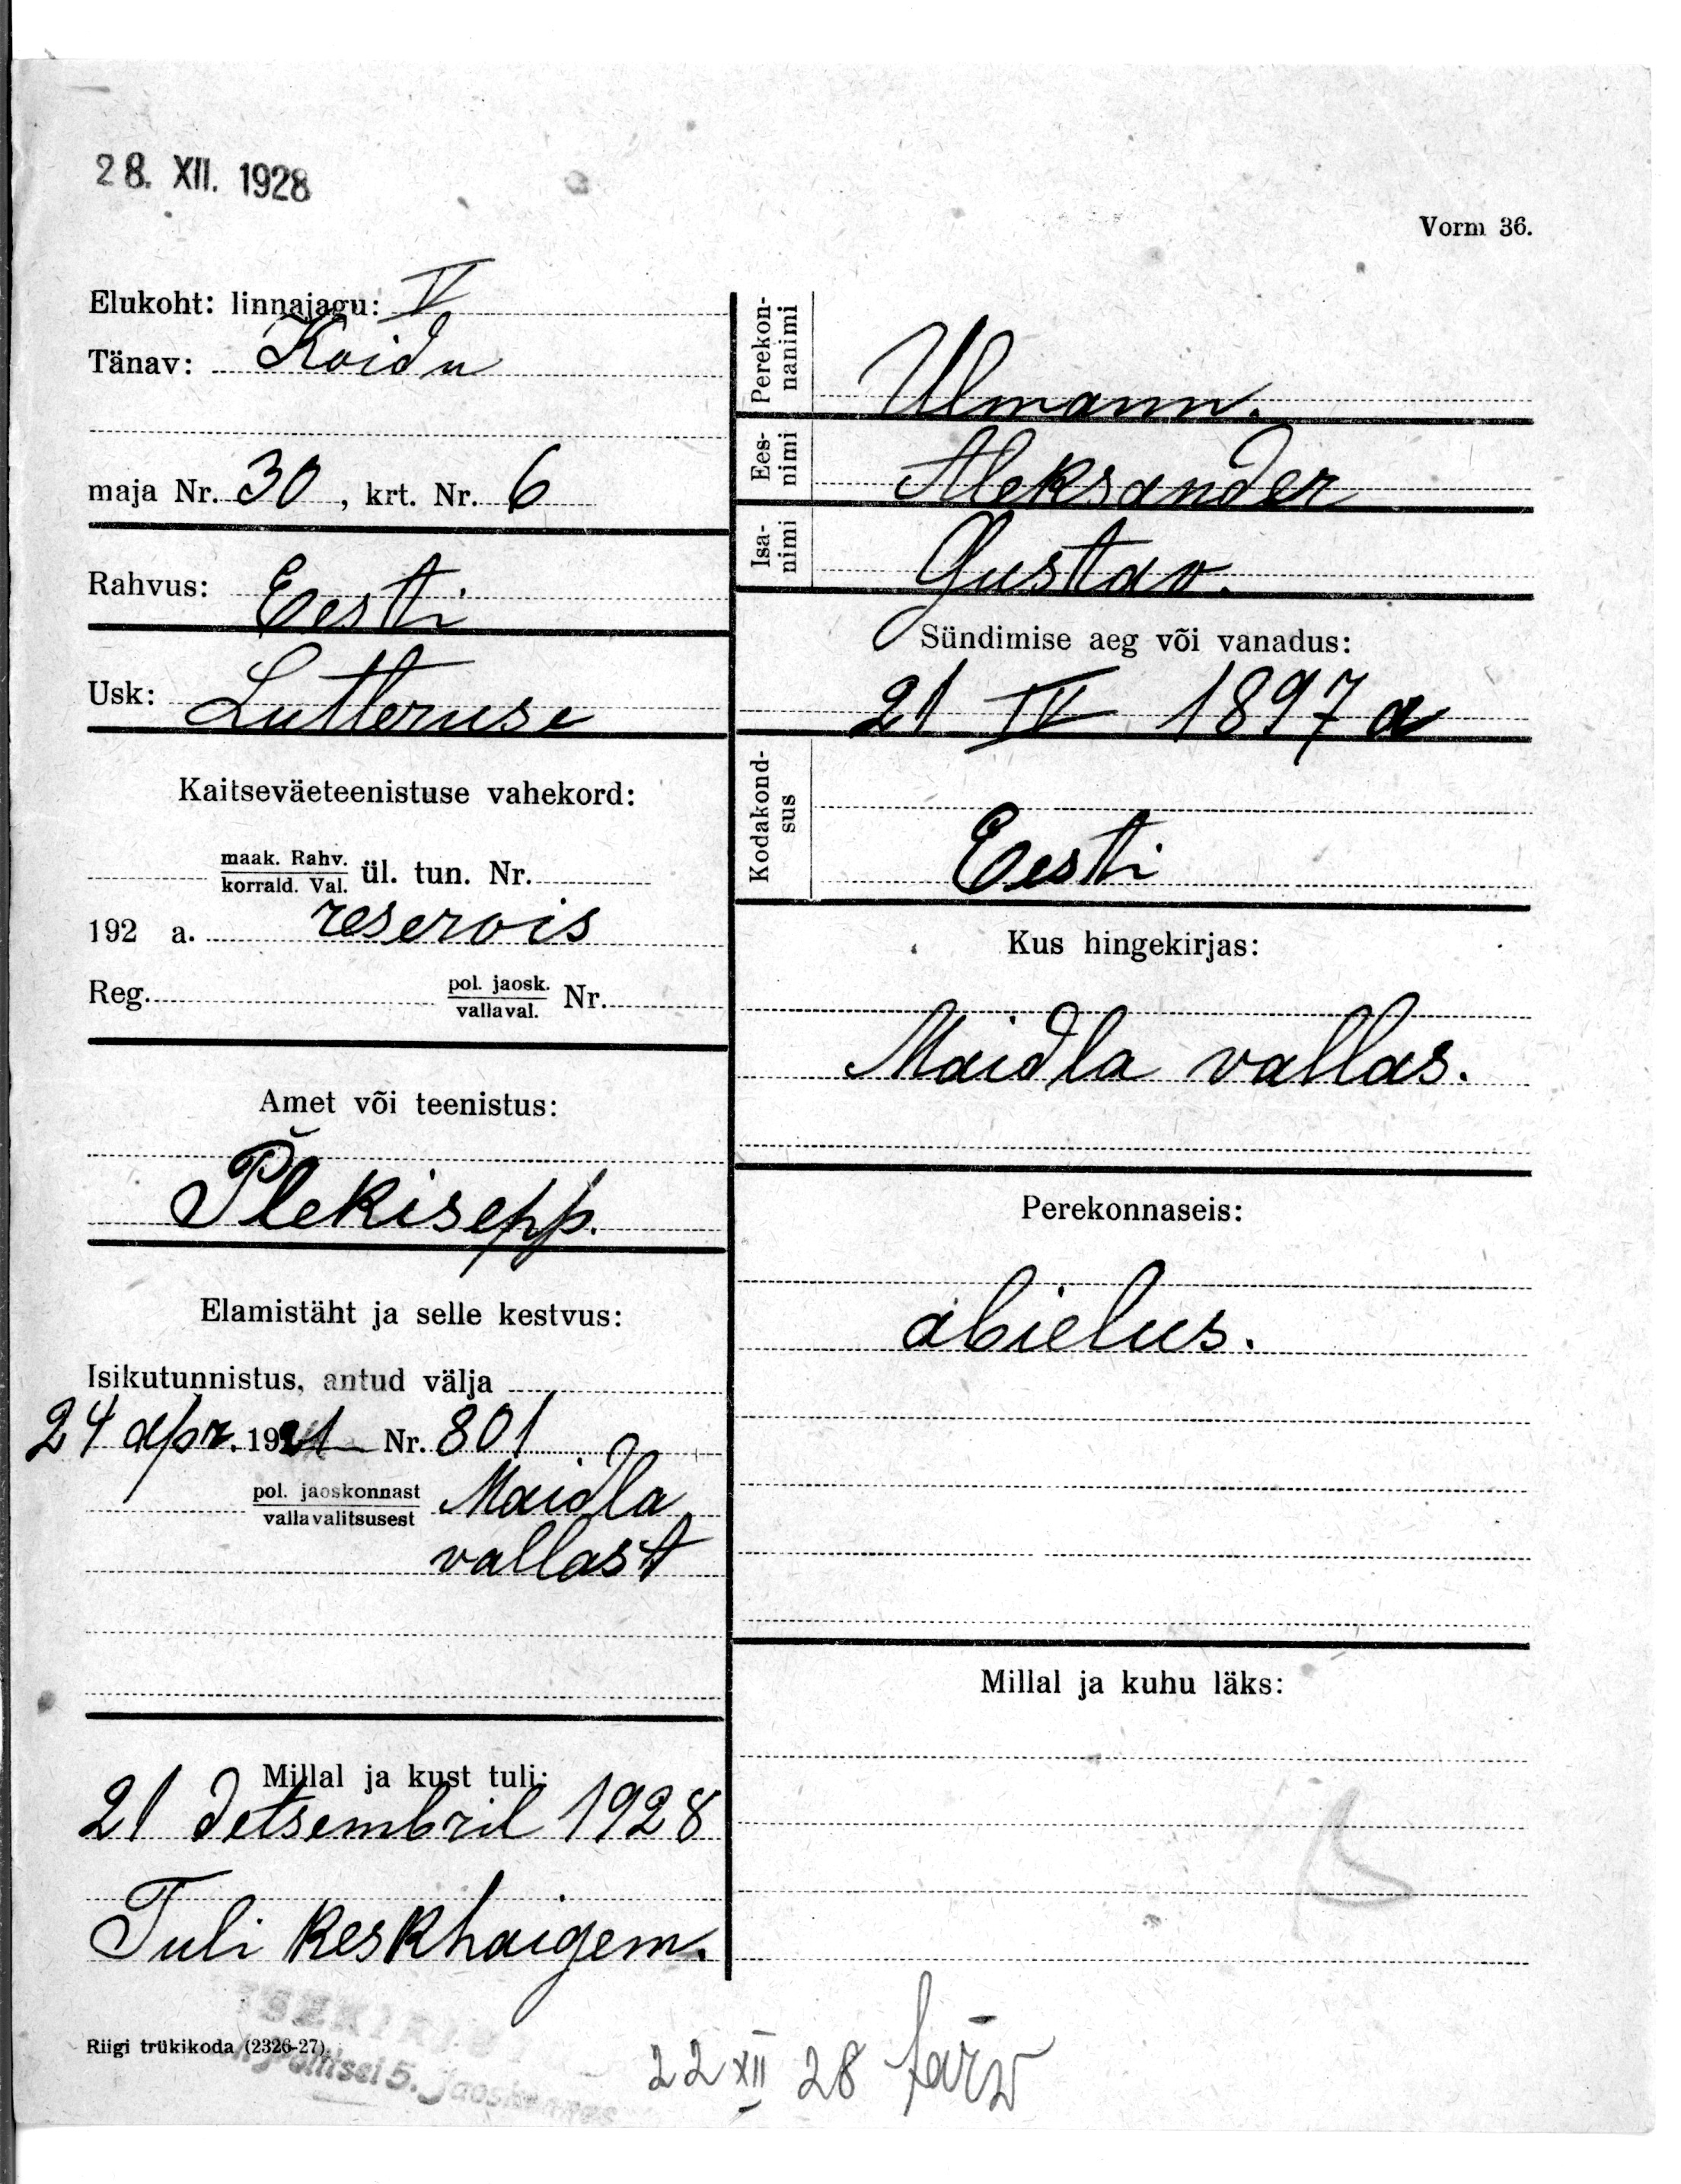 28. XII. 1928
Vorm 36.
Elukoht: linnajagu: V
Tänav: Koidu
maja Nr. 30, krt. Nr. 6
Rahvus: Eesti
Usk: Lutteruse
Kaitseväeteenistuse vahekord:
maak. Rahv.
korrald. Val. ül. tun. Nr.
192 a. reservis
Reg. pol. jaosk.
vallaval. Nr.
Amet või teenistus:
Plekisepp.
Elamistäht ja selle kestvus:
Isikutunnistus, antud välja
24 apr. 1921 Nr. 801
pol. jaoskonnast
vallavalitsusest Maidla
vallast
Millal ja kust tuli:
21 detsembril 1928
Tuli keskhaigem.
Riigi trükikoda (2326-27).
Perekon-
nanimi
Ulmann.
Ees-
nimi
Aleksander
Isa-
nimi
Gustav.
Sündimise aeg või vanadus:
21 IV 1897 a
Kodakond-
sus
Eesti
Kus hingekirjas:
Maidla vallas.
Perekonnaseis:
abielus.
Millal ja kuhu läks:
politsei 5. jaoskonnas
22 XII 28